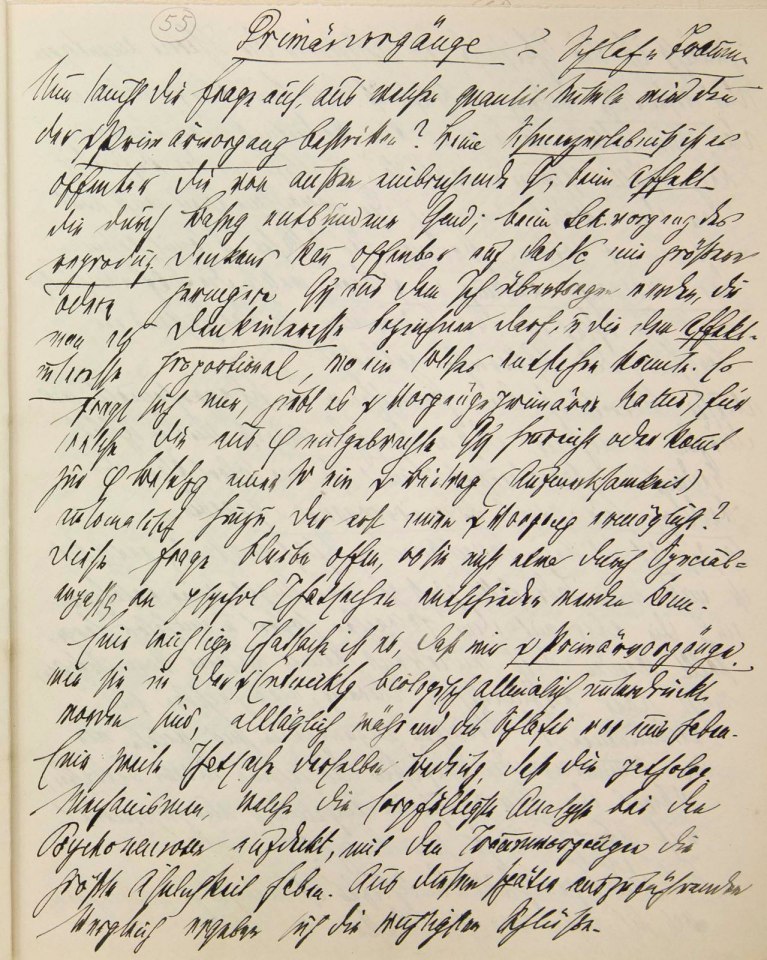 55
Primärvorgänge – Schlaf u Traum
Nun taucht die Frage auf, aus welchen quantit Mitteln wird denn
der ψPrimärvorgang bestritten? Beim Schmerzerlebniß ist es
offenbar die von außen einbrechende Q, beim Affekt
die durch Besetzg entbundene Quant; beim Sek.vorgang des
reproduz. Denkens kann offenbar auf das Nc eine größere
oder geringere Qή aus dem Ich übertragen werden, die
man als Denkinteresse bezeichnen darf, u die dem Affekt-
interesse proportional, wo ein solches entstehen konnte. Es
fragt sich nun, giebt es ψ Vorgänge primärer Natur, für
welche die aus φ aufgebrachte Qή hinreicht oder kommt
zur φ Besetzg einer W ein ψ Beitrag (Aufmerksamkeit)
automatisch hinzu, der erst einen ψVorgang ermöglicht?
Diese Frage bleibe offen, ob sie nicht etwa durch Special-
anpassg an psychol Thatsachen entschieden werden kann.
Eine wichtige Thatsache ist es, daß wir ψ Primärvorgänge,
wie sie in der ψEntwicklg biologisch allmälich unterdrückt
worden sind, alltäglich während des Schlafes vor uns haben.
Eine zweite Thatsache derselben Bedeutg, daß die patholog.
Mechanismen, welche die sorgfältigste Analyse bei den
Psychoneurosen aufdeckt, mit den Traumvorgängen die
größte Ähnlichkeit haben. Aus diesem später auszuführenden
Vergleich ergeben sich die wichtigsten Schlüsse.